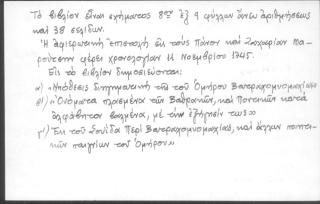 Τὸ βιβλίον εἶναι σχήματος 8ου ἐξ 9 φύλλων ἄνευ ἀριθμήσεως
καὶ 38 σελίδων.
Ἡ ἀφιερωτικὴ ἐπιστολὴ εἰς τοὺς Πάνον καὶ Ζαχαρίαν Μα-
ρούτσην φέρει χρονολογίαν 11 Νοεμβρίου 1745.
Εἰς τὸ βιβλίον δημοσιεύονται:
α) «Ὑπόθεσις διηγηματικὴ τῆς τοῦ Ὁμήρου Βατραχομυομαχίας»
β) «Ὀνόματα πλασμένα τῶν Βαθρακῶν, καὶ Ποντικῶν κατὰ
ἀλφάβητον βαλμένα, μὲ τὴν ἐξήγησίν τως»
γ) Ἐκ τοῦ Σουΐδα Περὶ Βατραχομυομαχίας, καὶ ἄλλων ποιητι-
κῶν παιγνίων τοῦ Ὁμήρου»